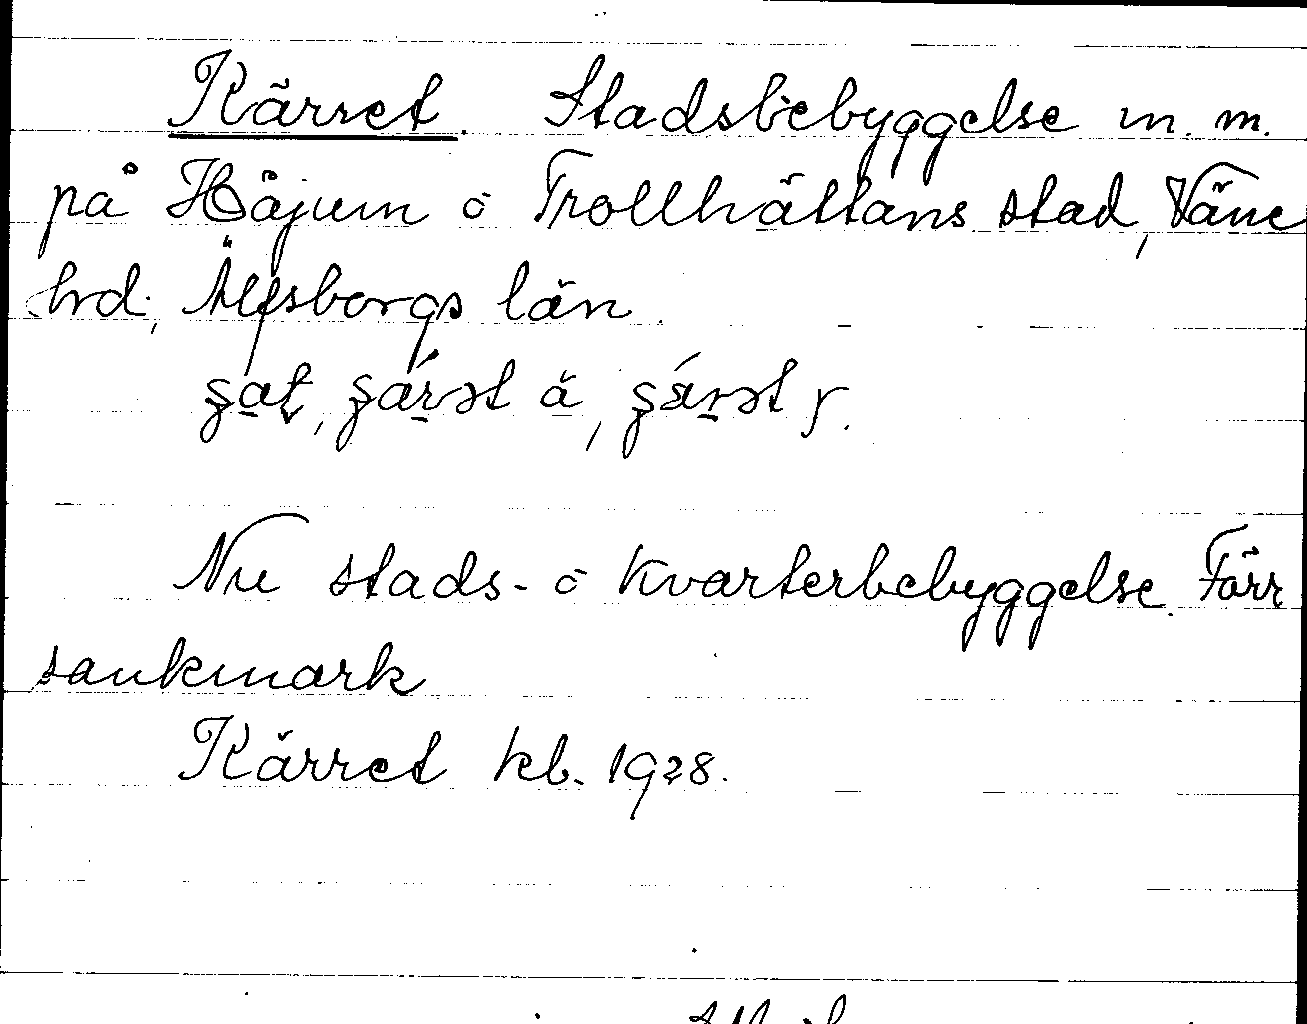 Kärret. Stadsbebyggelse m. m.
på Håjum o Trollhättans stad, Väne
hrd., Älfsborgs län.
Nu stads- o kvarterbebyggelse. Förr
sankmark
Kärret kb. 1928.